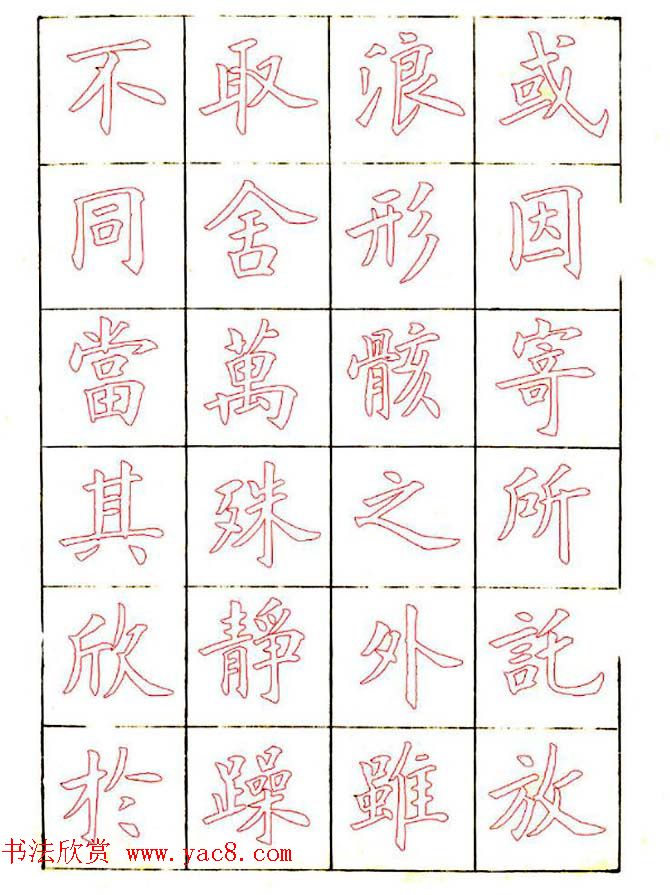 或因寄所託放
浪形骸之外雖
取舍萬殊靜躁
不同當其欣於
书法欣赏 www.yac8.com